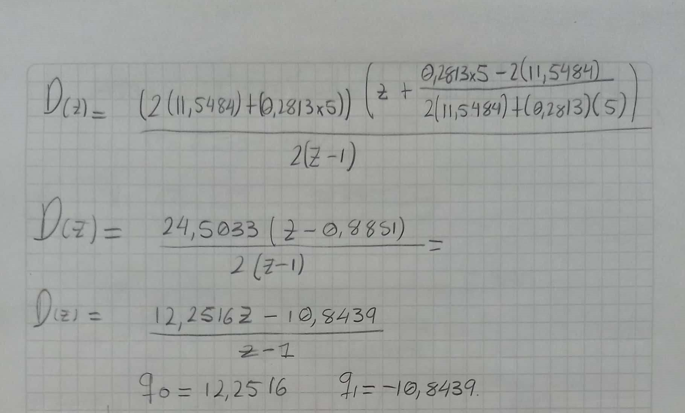 D(z)= (2(11,5484)+(0,2813x5)) (z + 0,2813x5-2(11,5484) / 2(11,5484)+(0,2813)(5)) / 2(z-1)
D(z)= 24,5033(z-0,8851) / 2(z-1) =
D(z)= 12,2516z-10,8439 / z-1
q0=12,2516 q1=-10,8439.